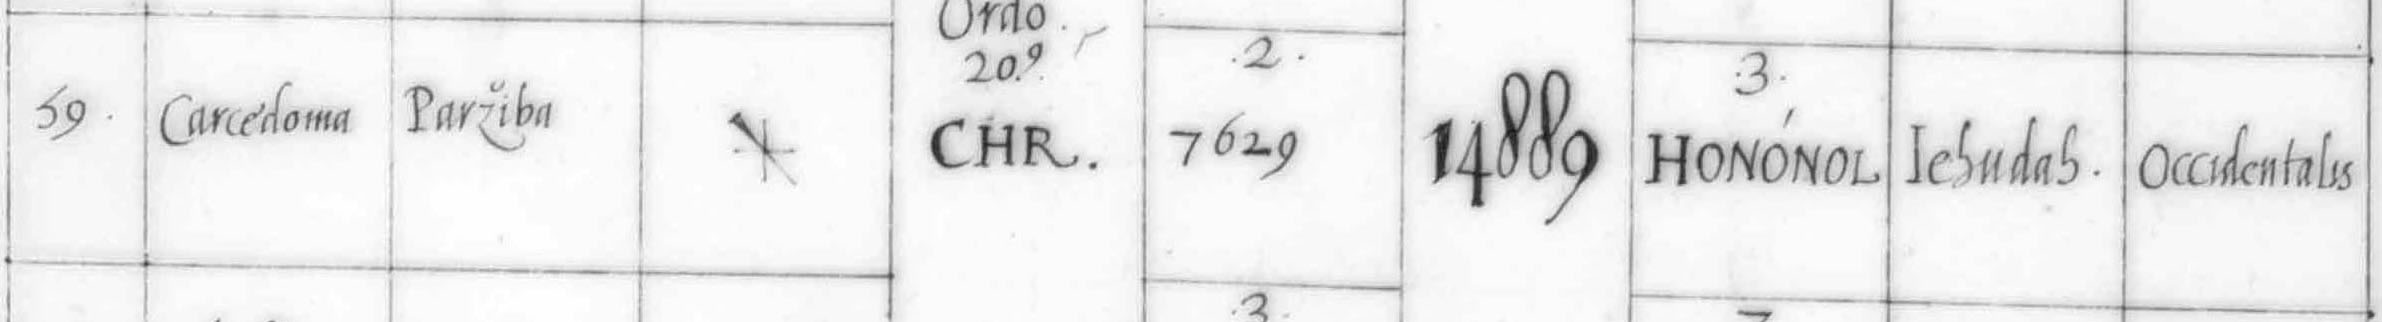 59. Carcedoma Paržiba
Ordo.
20.9.
CHR.
.2.
7629
14889
.3.
HONÓNOL Iesudas. Occidentalis
.3.